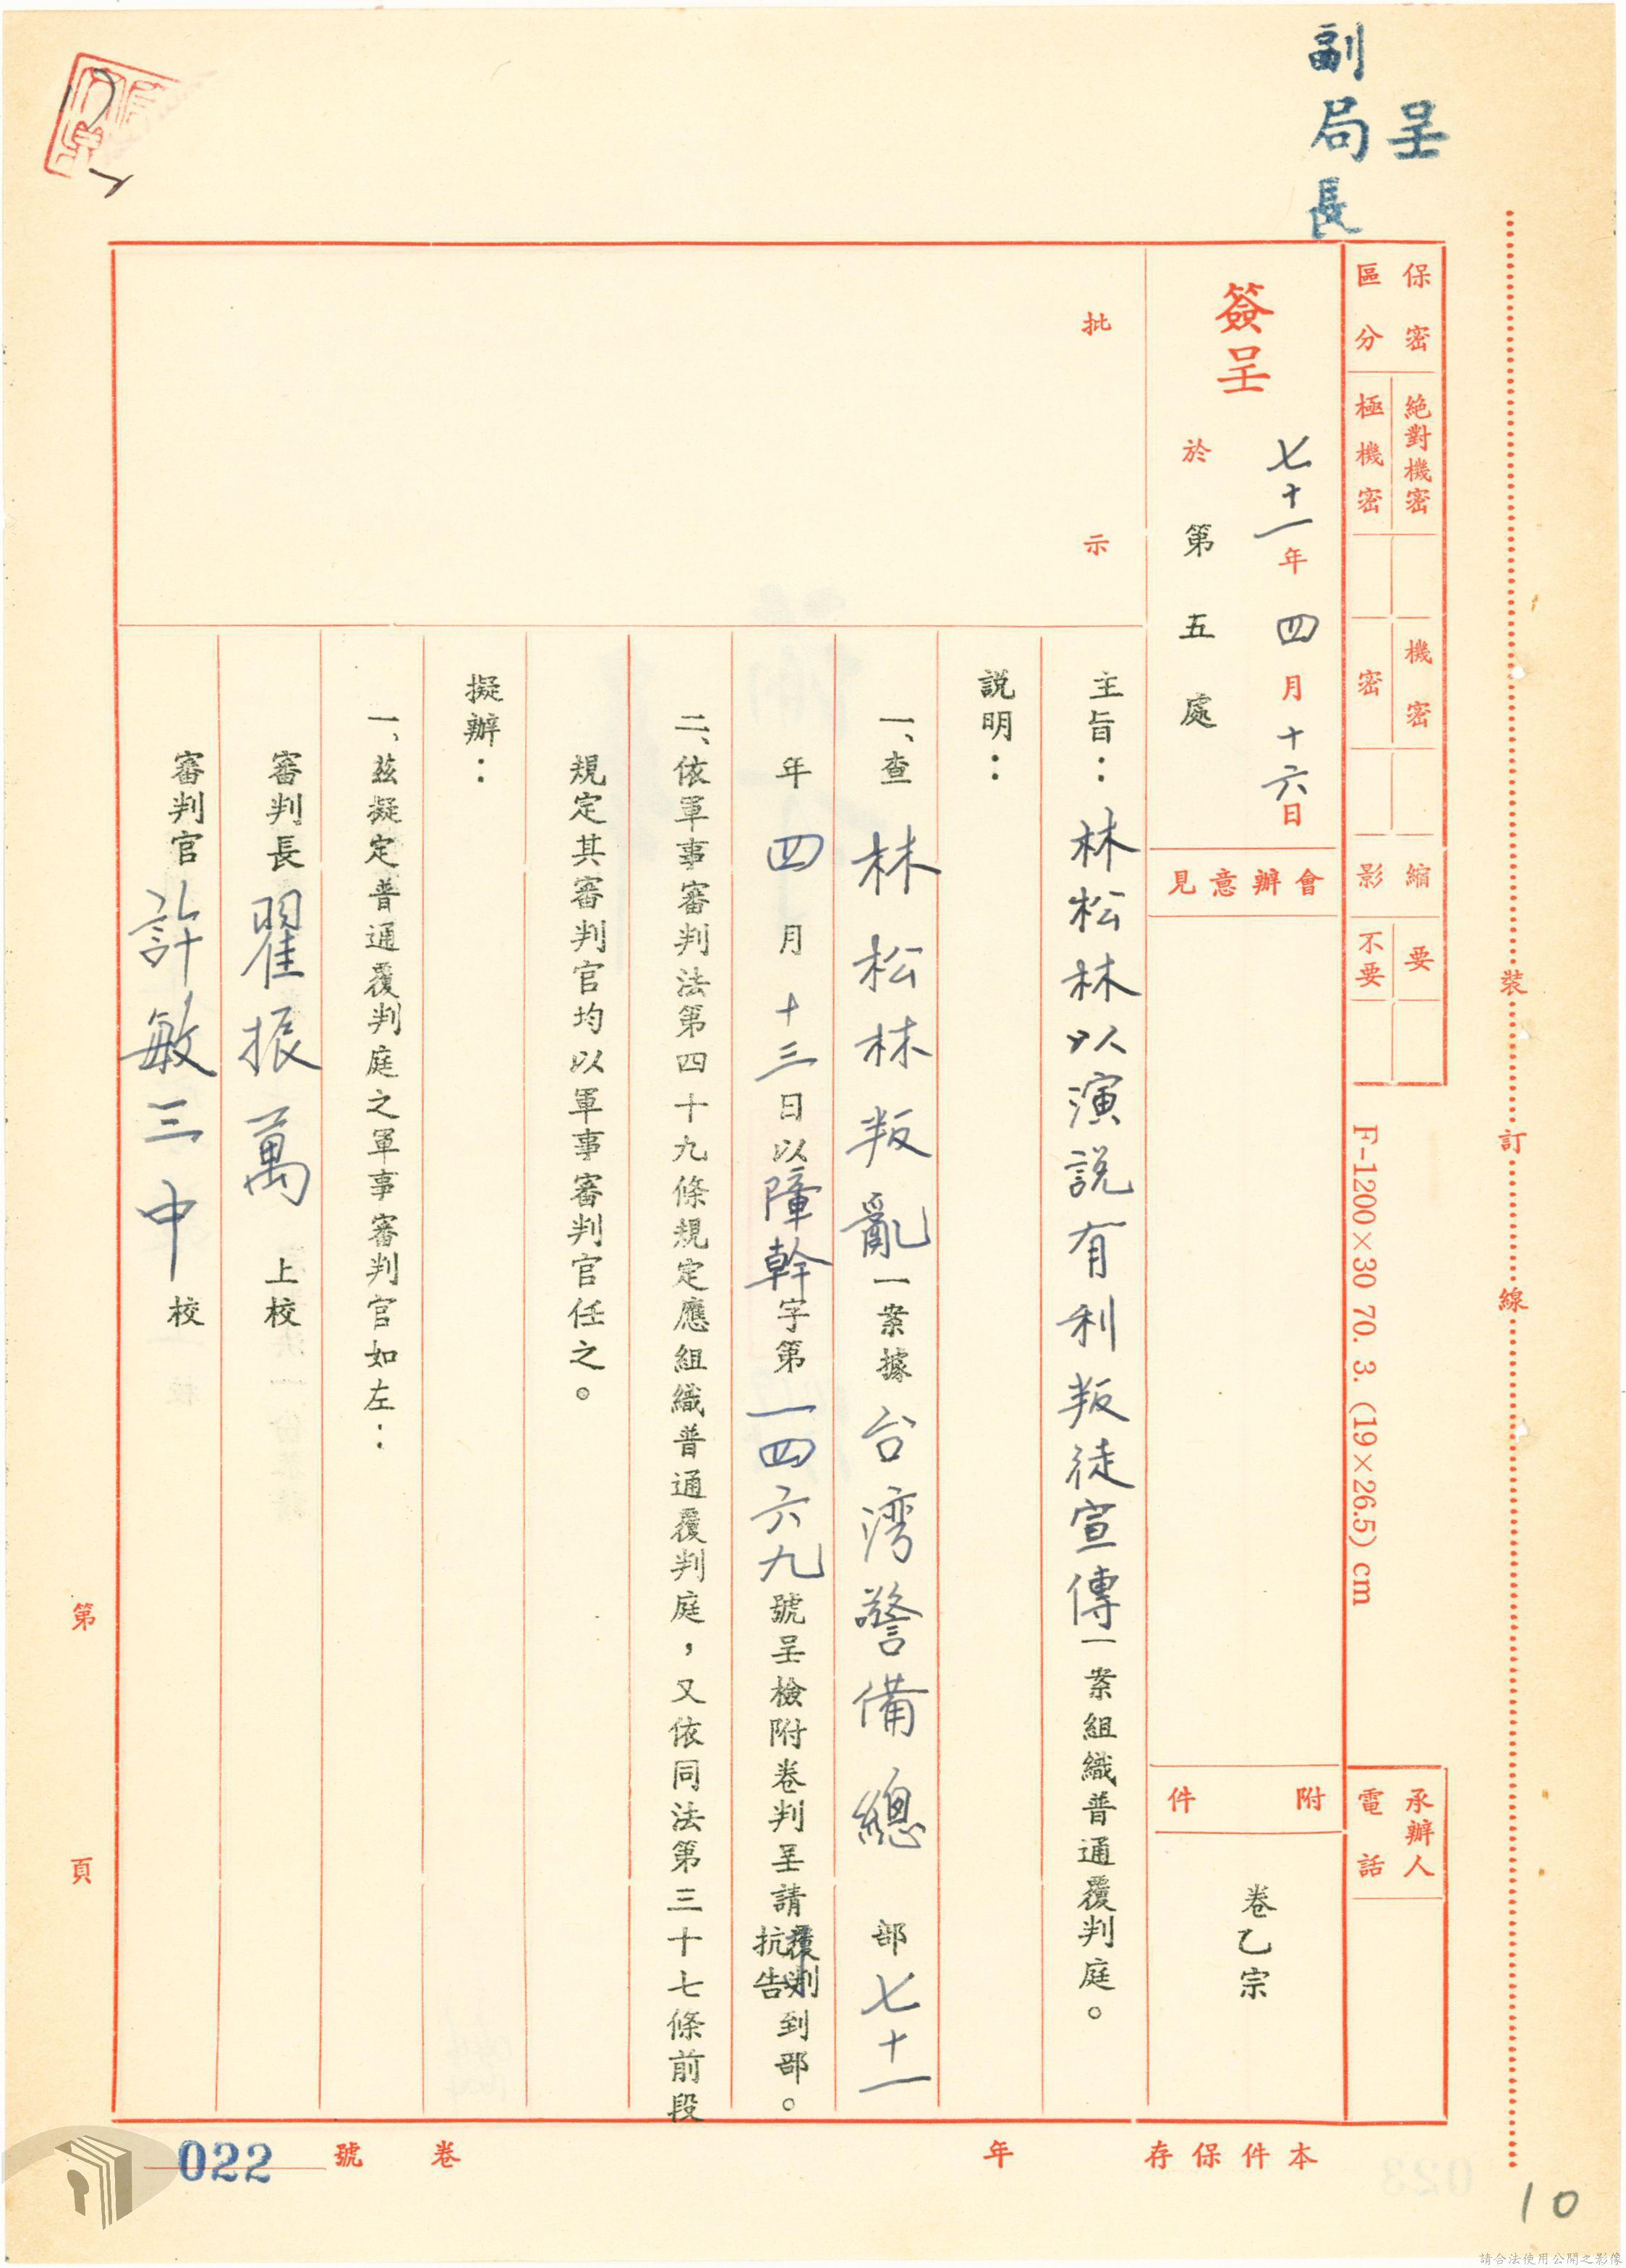 呈
副局長
保密區分
絕對機密
極機密
機密
密
縮影
要
不要
F-1200×30 70. 3. (19×26.5) cm
承辦人
電話
簽呈
七十一年四月十六日
於第五處
會辦意見
附件
卷乙宗
批示
主旨：林松林以演說有利叛徒宣傳一案組織普通覆判庭。
說明：
一、查林松林叛亂一案據台湾警備總部七十一
年四月十三日以障幹字第一四六九號呈檢附卷判呈請覆判抗告到部。
二、依軍事審判法第四十九條規定應組織普通覆判庭，又依同法第三十七條前段
規定其審判官均以軍事審判官任之。
擬辦：
一、茲擬定普通覆判庭之軍事審判官如左：
審判長翟振萬　上校
審判官許敏三中校
裝訂線
第頁
本件保存年
卷號
022
10
請合法使用公開之影像